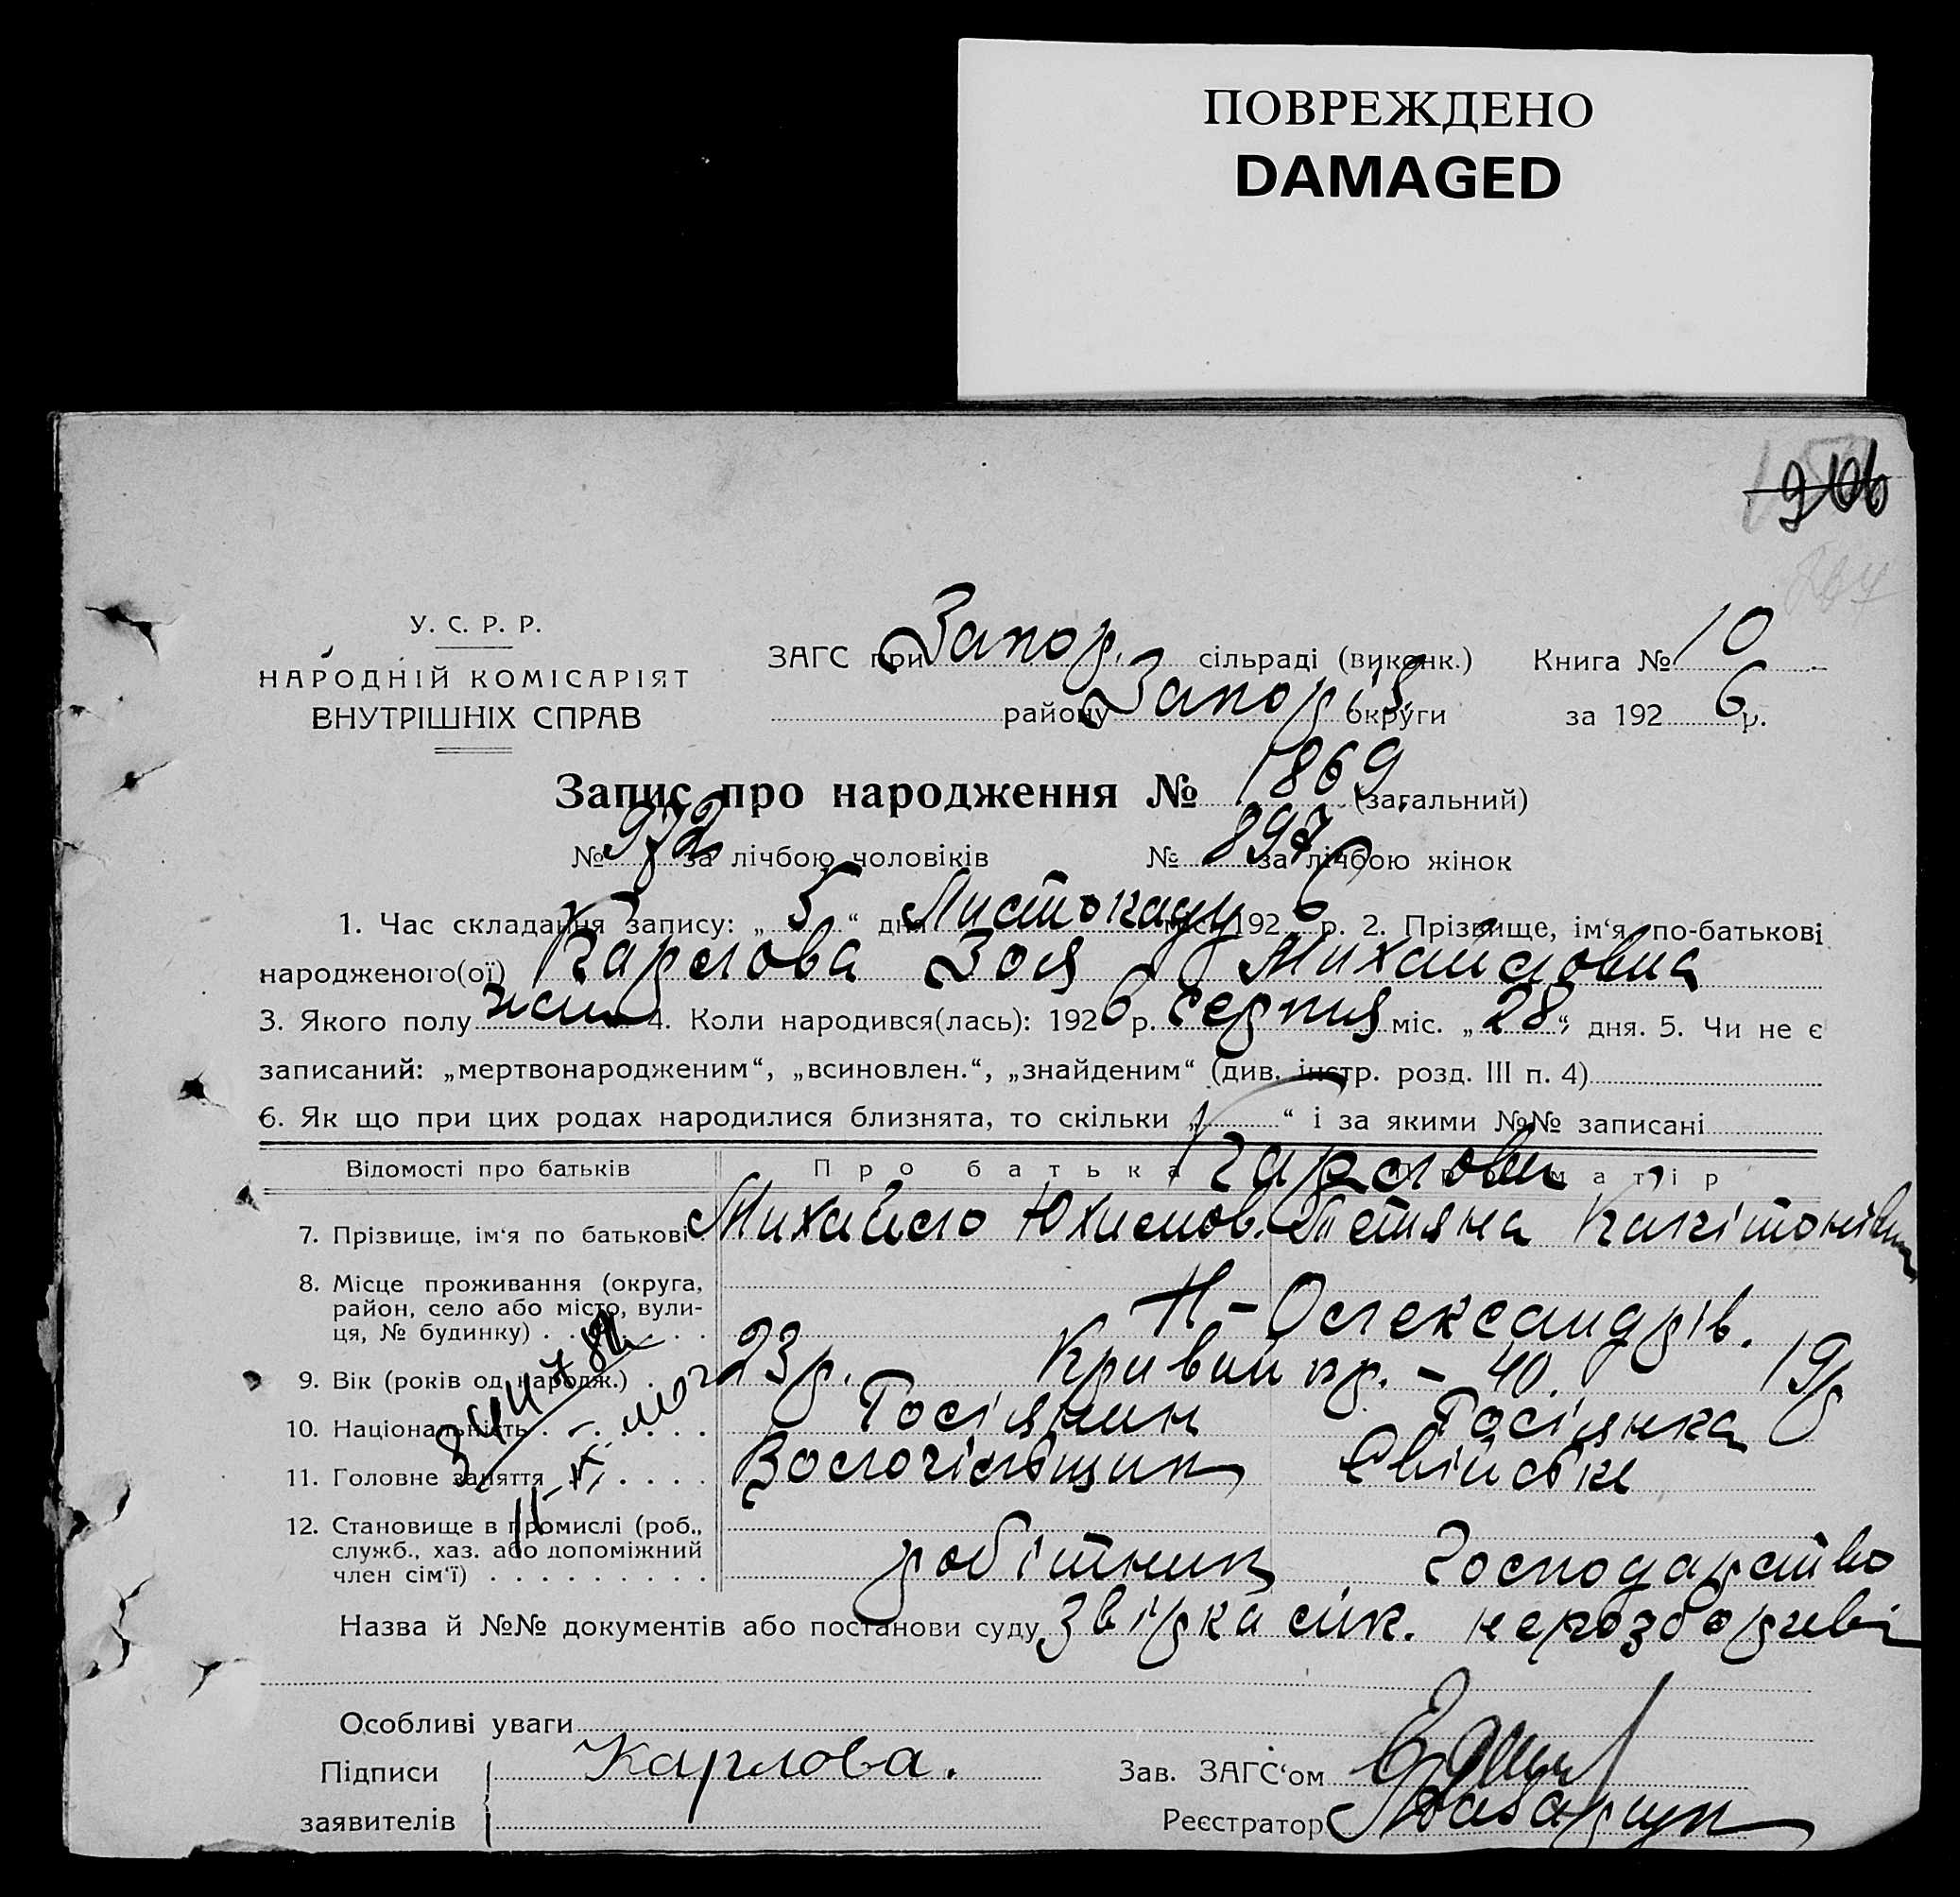 ПОВРЕЖДЕНО
DAMAGED
У. С. Р. Р.
НАРОДНІЙ КОМІСАРІЯТ
ВНУТРІШНІХ СПРАВ
ЗАГС при Запор. сільраді (виконк.) Книга № 10
району Запоріз округи за 1926 р.
Запис про народження № 1869 (загальний)
№ 972 за лічбою чоловіків № 897 за лічбою жінок
1. Час складання запису: „5“ дня Листопаду міс. 1926 р. 2. Прізвище, ім‘я, по-батькові
народженого(ої) Карлова Зоя Михайловна
3. Якого полу жін 4. Коли народився(лась): 1926 р. серпня міс. „28“ дня. 5. Чи не є
записаний: „мертвонародженим“, „всиновлен.“, „знайденим“ (див. інстр. розд. III п. 4)
6. Як що при цих родах народилися близнята, то скільки „ “ і за якими №№ записані
Відомості про батьків Про батька Про матір
Карлови
7. Прізвище, ім‘я по батькові Михайло Юхимов. Тетяна Капітонівна
8. Місце проживання (округа, район, село або місто, вулиця, № будинку) Н-Олександрів.
Кривий пр. - 40.
9. Вік (років од народж.) 23 р. 19 р
10. Національність Росіянин Росіянка
11. Головне заняття Свійське
12. Становище в промислі (роб., служб., хаз. або допоміжний член сім‘ї) робітник господарство
Назва й №№ документів або постанови суду нерозборчеві
Особливі уваги
Підписи заявителів Карлова.
Зав. ЗАГС‘ом
Реєстратор